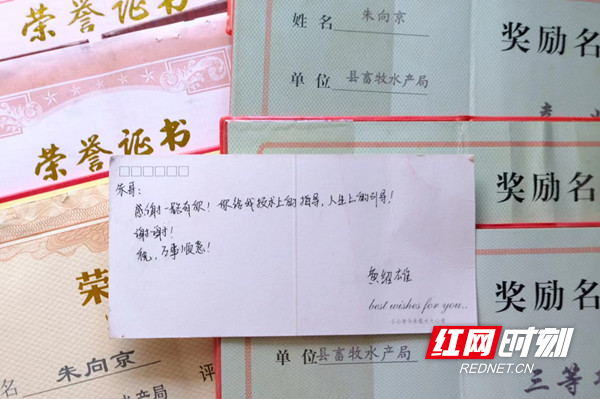 荣誉证书
荣誉证书
荣
名 朱向京
水产局 评
姓名 朱向京
单位 县畜牧水产局
奖励名
奖励名
奖励名
单位 县畜牧水产局
三等
朱哥:
感谢一路有您! 您给我技术上的指导,人生上的引导!
谢谢!
祝,万事顺意!
黄绍雄
best wishes for you..
红网时刻
REDNET.CN